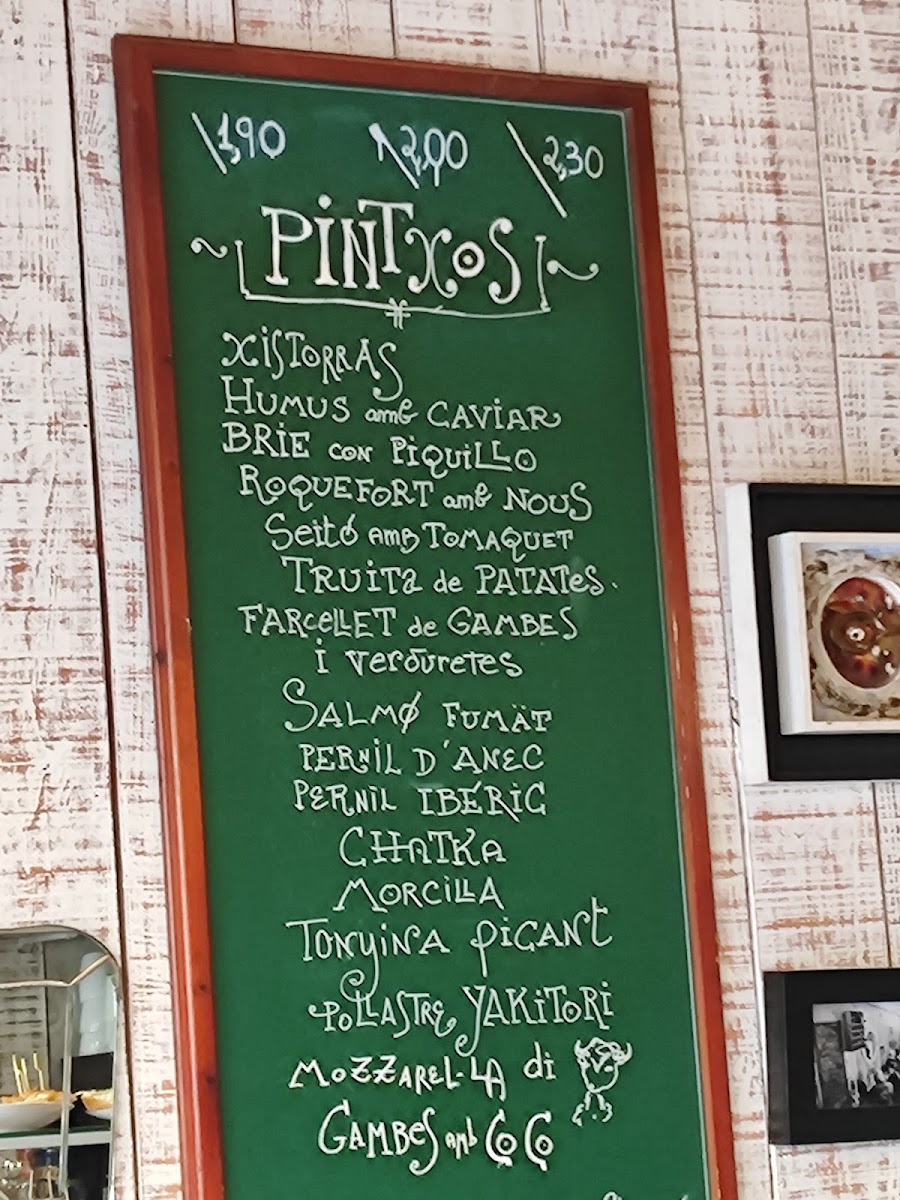 \1,90 \2,00 \2,30
PINTXOS
XISTORRAS
HUMUS amb CAVIAR
BRIE CON PIQUILLO
ROQUEFORT amb NOUS
Seitó AMB TOMAQUET
TRUITA de PATATES.
FARCELLET de GAMBES
i verduretes
SALMÓ FUMÄT
PERNIL D'ANEC
PERNIL IBÉRIC
CHATKA
MORCILLA
TONYINA PICANT
POLLASTRE YAKITORI
MOZZAREL-LA di
GAMBES amb COCO